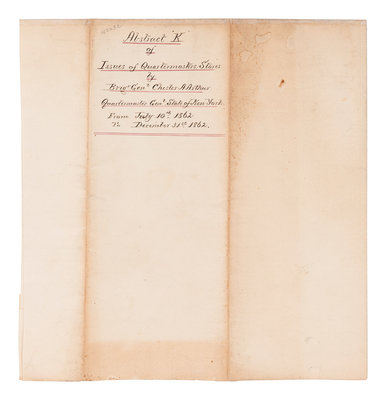 Abstract "K"
of
Issues of Quartermasters Stores
by
Brigr Genl Chester A Arthur
Quartermaster Genl State of New York.
From July 10th 1862
To December 31st 1862.